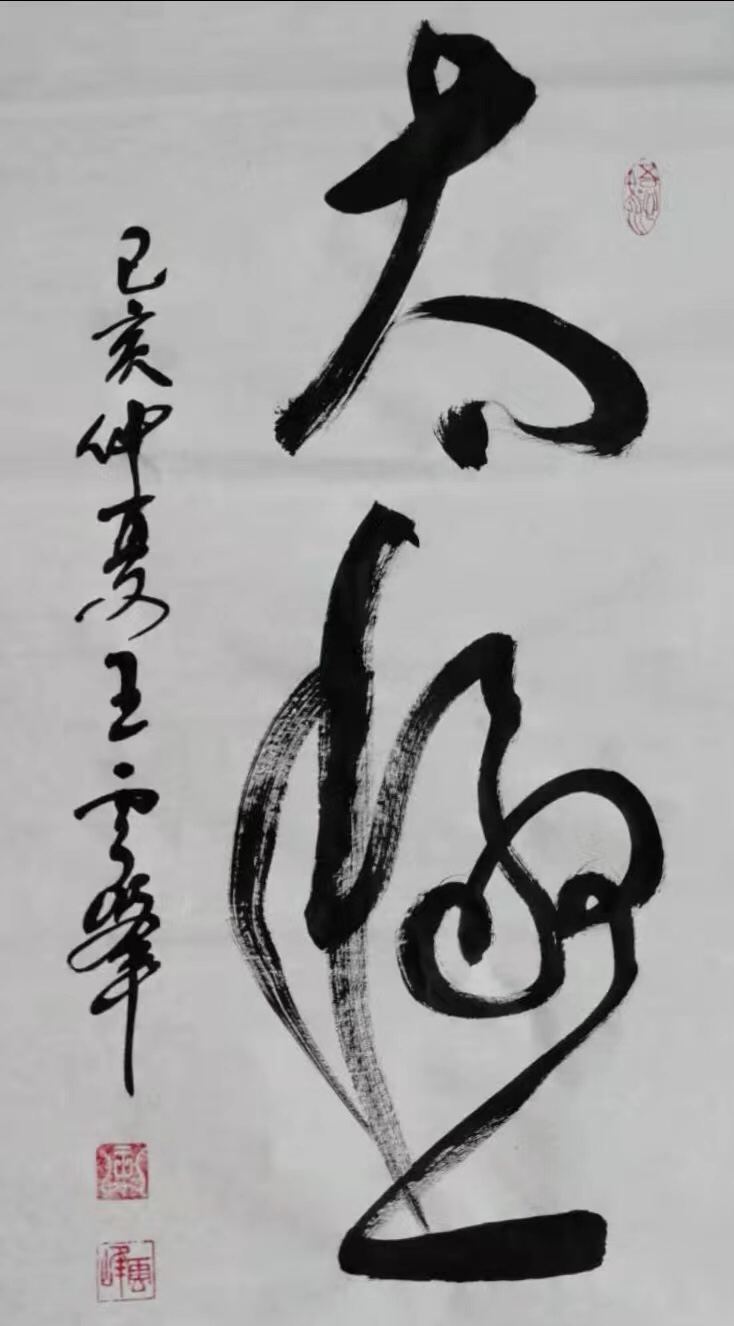 太極
己亥仲夏王雲峯
雲峰